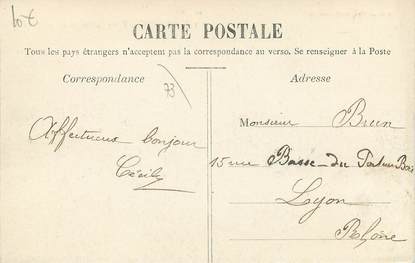 lot
CARTE POSTALE
Tous les pays étrangers n'acceptent pas la correspondance au verso. Se renseigner à la Poste
Correspondance
Adresse
73
Monsieur Brun
Affectueux bonjour
15 rue Basse-du Port-au-Bois
Cécily
Lyon
Rhône